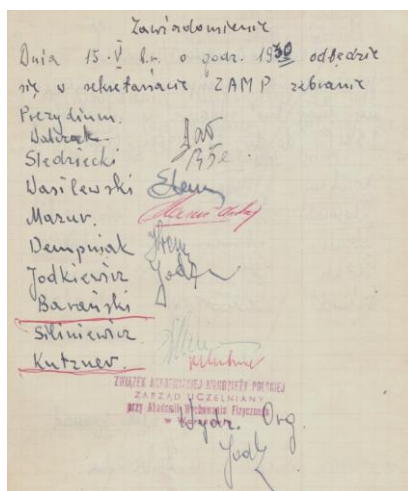 Zawiadomienie
Dnia 15.V b.r. o godz. 19 30 odbędzie
się w sekretariacie ZAMP zebranie
Prezydium.
Walczak
Śledziecki
Wasilewski
Mazur.
Dempniak
Jodkiewicz
Barański
Siliniewicz
Kutzner.
ZWIĄZEK AKADEMICKIEJ MŁODZIEŻY POLSKIEJ
ZARZĄD UCZELNIANY
przy Akademii Wychowania Fizycznego
w Warszawie
Wydz. Org.
Jodk